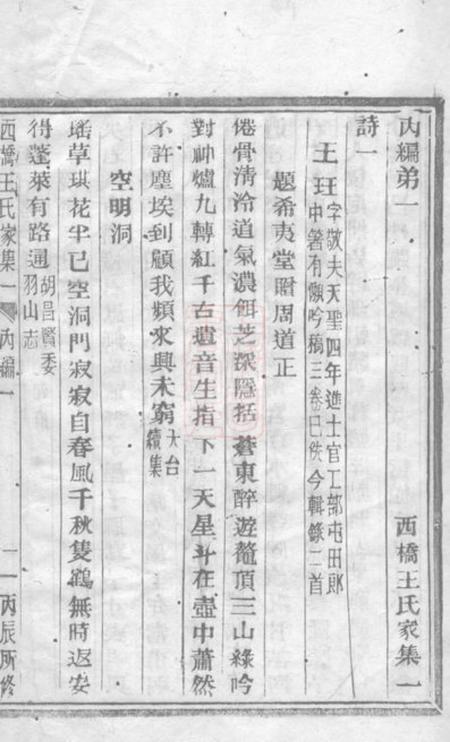 丙編弟一 西橋王氏家集一
詩一
王珏 字敬夫天聖四年進士官工部屯田郎
中著有懶吟稿三卷已佚今輯錄二首
題希夷堂贈周道正
倦骨清泠道氣濃餌芝深隱括蒼東醉遊鼇頂三山綠吟
對神爐九轉紅千古遺音生指下一天星斗在壺中蕭然
不許塵埃到顧我頻來興未窮 天台
續集
空明洞
瑤草琪花半已空洞門寂寂自春風千秋隻鶴無時返安
得蓬萊有路通 胡昌賢委
羽山志
西橋王氏家集一 丙編一 二 丙辰所修